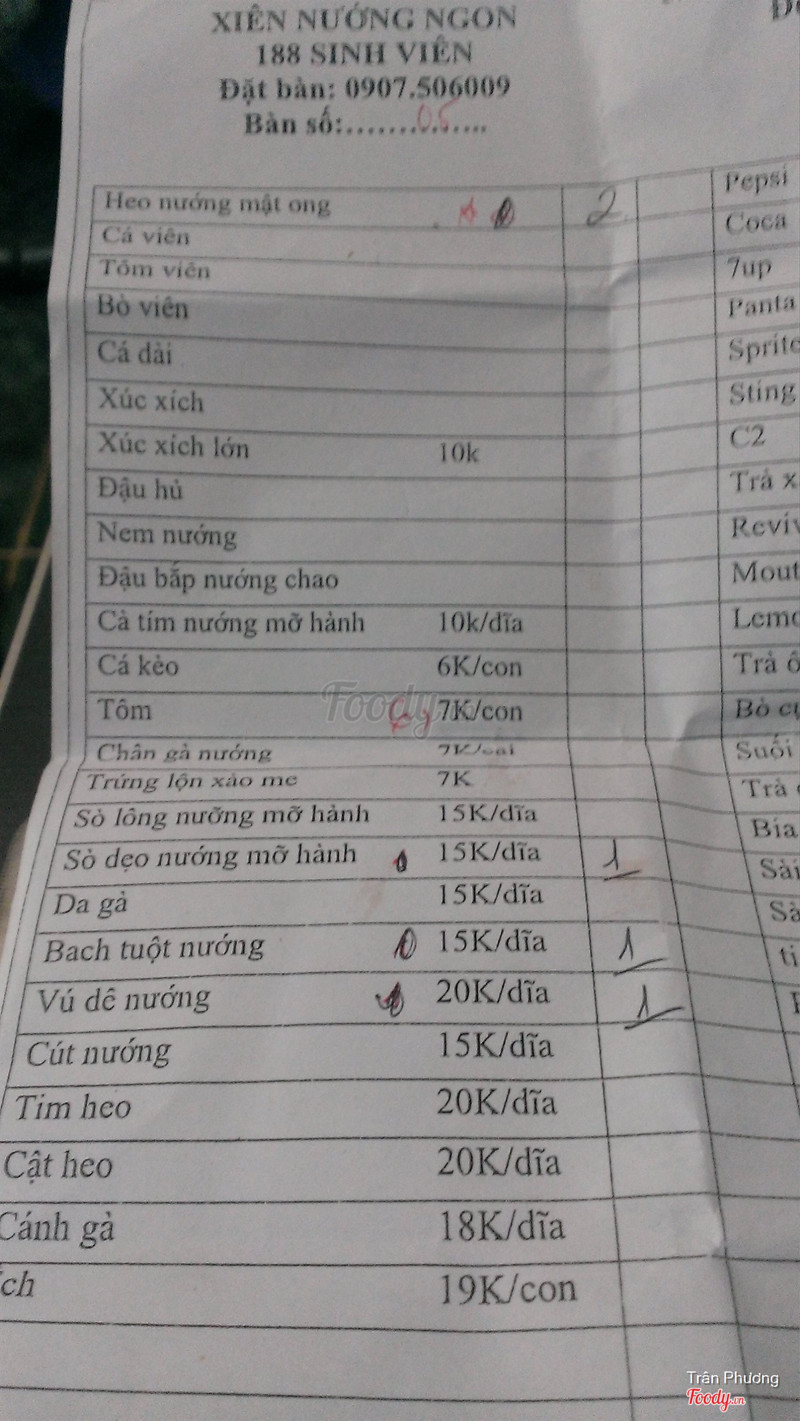 XIÊN NƯỚNG NGON
188 SINH VIÊN
Đặt bàn: 0907.506009
Bàn số:.....05.....
Heo nướng mật ong 2 Pepsi
Cá viên Coca
Tôm viên 7up
Bò viên Panta
Cá dài Sprite
Xúc xích Sting
Xúc xích lớn 10k C2
Đậu hủ Trà x
Nem nướng Reviv
Đậu bắp nướng chao Mout
Cà tím nướng mỡ hành 10k/dĩa Lemo
Cá kèo 6K/con Trà ô
Tôm 7K/con Bò cụ
Chân gà nướng 7K/cai Suối
Trứng lộn xào me 7K Trà
Sò lông nưỡng mỡ hành 15K/dĩa Bia
Sò dẹo nướng mỡ hành 15K/dĩa 1 Sài
Da gà 15K/dĩa Sà
Bach tuột nướng 15K/dĩa 1 ti
Vú dê nướng 20K/dĩa 1
Cút nướng 15K/dĩa
Tim heo 20K/dĩa
Cật heo 20K/dĩa
Cánh gà 18K/dĩa
ch 19K/con
Foody
Trân Phương
Foody.vn